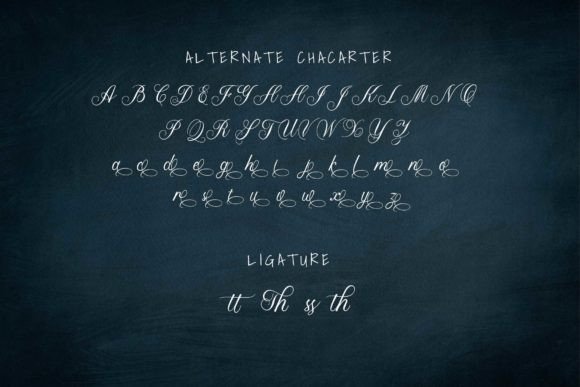 ALTERNATE CHACARTER
A B C D E F G H I J K L M N O
P Q R S T U V W X Y Z
a c d e g h i p k l m n o
r s t u v w x y z
LIGATURE
tt Th ss th